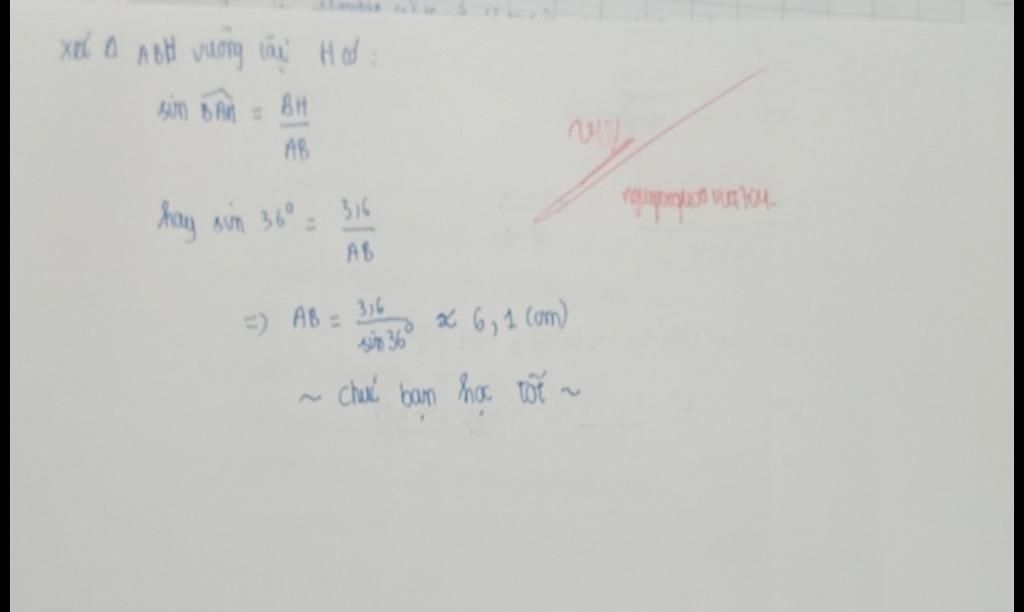 Xét Δ ABH vuông tại H có:
sin BAH = BH / AB
hay sin 36° = 3,6 / AB
=> AB = 3,6 / sin 36° ≈ 6,1 (cm)
~ chúc bạn học tốt ~